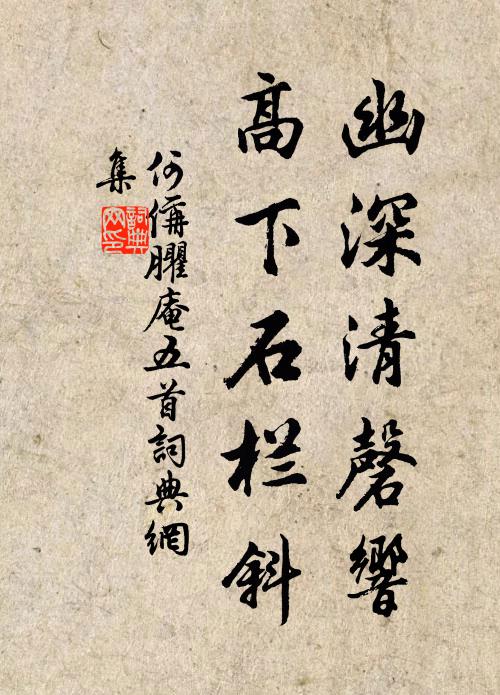 幽深清磬響
高下石栏斜
何偁臞庵五首詞典網
集
詞典
网印